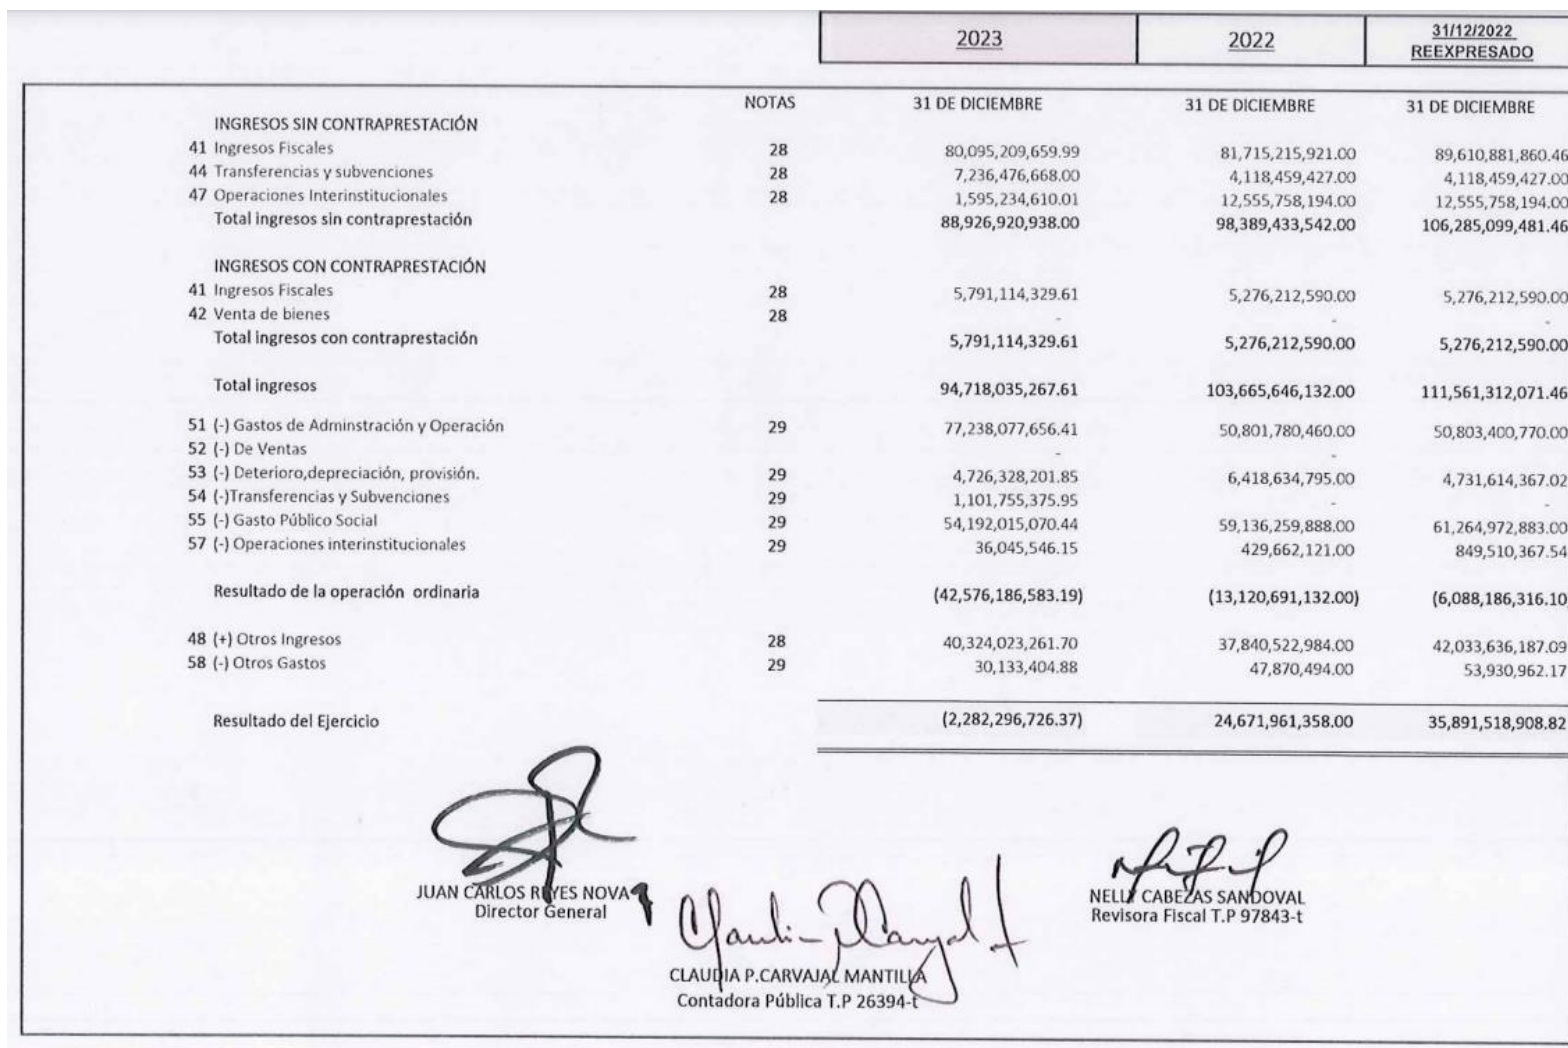 2023 2022 31/12/2022
REEXPRESADO
NOTAS 31 DE DICIEMBRE 31 DE DICIEMBRE 31 DE DICIEMBRE
INGRESOS SIN CONTRAPRESTACIÓN
41 Ingresos Fiscales 28 80,095,209,659.99 81,715,215,921.00 89,610,881,860.46
44 Transferencias y subvenciones 28 7,236,476,668.00 4,118,459,427.00 4,118,459,427.00
47 Operaciones Interinstitucionales 28 1,595,234,610.01 12,555,758,194.00 12,555,758,194.00
Total ingresos sin contraprestación 88,926,920,938.00 98,389,433,542.00 106,285,099,481.46
INGRESOS CON CONTRAPRESTACIÓN
41 Ingresos Fiscales 28 5,791,114,329.61 5,276,212,590.00 5,276,212,590.00
42 Venta de bienes 28 - - -
Total ingresos con contraprestación 5,791,114,329.61 5,276,212,590.00 5,276,212,590.00
Total ingresos 94,718,035,267.61 103,665,646,132.00 111,561,312,071.46
51 (-) Gastos de Adminstración y Operación 29 77,238,077,656.41 50,801,780,460.00 50,803,400,770.00
52 (-) De Ventas - -
53 (-) Deterioro,depreciación, provisión. 29 4,726,328,201.85 6,418,634,795.00 4,731,614,367.02
54 (-)Transferencias y Subvenciones 29 1,101,755,375.95 - -
55 (-) Gasto Público Social 29 54,192,015,070.44 59,136,259,888.00 61,264,972,883.00
57 (-) Operaciones interinstitucionales 29 36,045,546.15 429,662,121.00 849,510,367.54
Resultado de la operación ordinaria (42,576,186,583.19) (13,120,691,132.00) (6,088,186,316.10
48 (+) Otros Ingresos 28 40,324,023,261.70 37,840,522,984.00 42,033,636,187.09
58 (-) Otros Gastos 29 30,133,404.88 47,870,494.00 53,930,962.17
Resultado del Ejercicio (2,282,296,726.37) 24,671,961,358.00 35,891,518,908.82
JUAN CARLOS REYES NOVA
Director General
NELLY CABEZAS SANDOVAL
Revisora Fiscal T.P 97843-t
CLAUDIA P.CARVAJAL MANTILLA
Contadora Pública T.P 26394-t